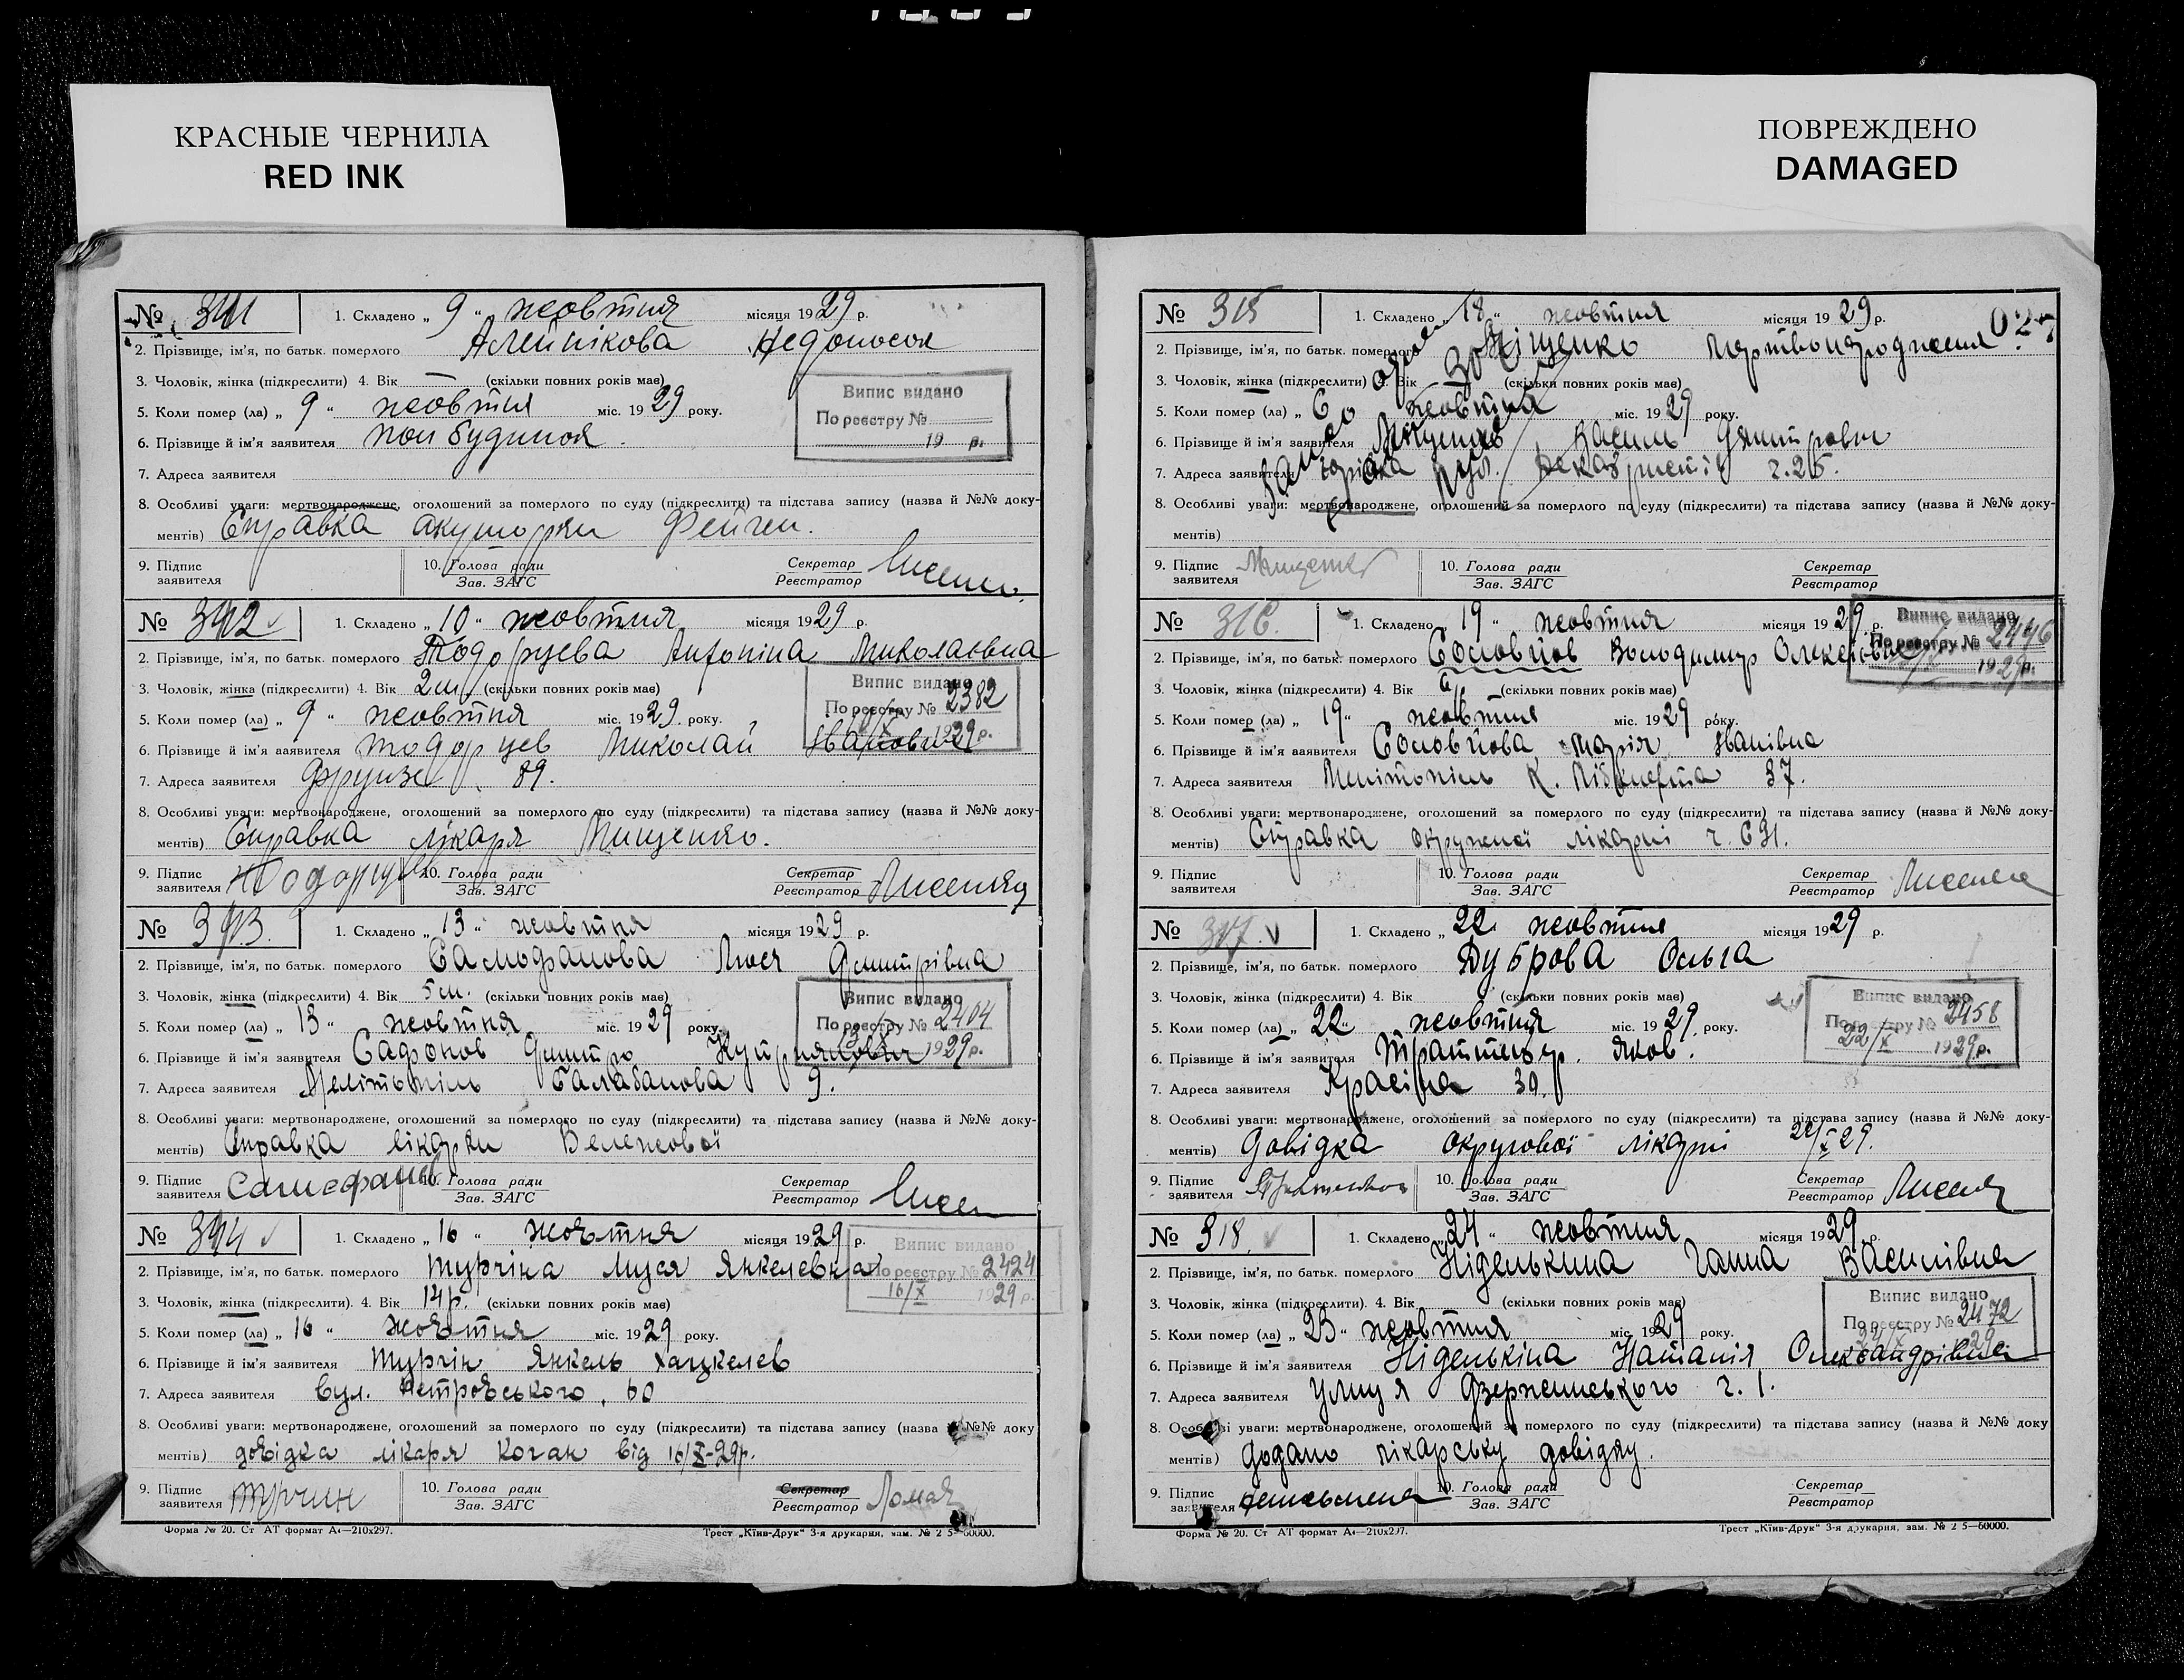 КРАСНЫЕ ЧЕРНИЛА
RED INK
ПОВРЕЖДЕНО
DAMAGED
№ 1. Складено „ 9 “ жовтня місяця 1929 р.
2. Прізвище, ім'я, по батьк. померлого Алейнікова Недоносок
3. Чоловік, жінка (підкреслити) 4. Вік — (скільки повних років має)
Випис видано
По реєстру №
19 р.
5. Коли помер (ла) „ 9 “ жовтня міс. 1929 року.
6. Прізвище й ім'я заявителя пом будинок
7. Адреса заявителя
8. Особливі уваги: мертвонароджене, оголошений за померлого по суду (підкреслити) та підстава запису (назва й №№ доку-
ментів) Справка акушорки Фейген.
9. Підпис заявителя 10. Голова ради Зав. ЗАГС Секретар Реєстратор
№ 1. Складено „ 10 “ жовтня місяця 1929 р.
2. Прізвище, ім'я, по батьк. померлого Тодорцева Антоніна Миколаївна
3. Чоловік, жінка (підкреслити) 4. Вік 2 м. (скільки повних років має)
Випис видано
По реєстру № 2382
1929 р.
5. Коли помер (ла) „ 9 “ жовтня міс. 1929 року.
6. Прізвище й ім'я заявителя Тодорцев Миколай Іванович
7. Адреса заявителя Фрунзе 89.
8. Особливі уваги: мертвонароджене, оголошений за померлого по суду (підкреслити) та підстава запису (назва й №№ доку-
ментів) Справка лікаря Мищенко.
9. Підпис заявителя 10. Голова ради Зав. ЗАГС Секретар Реєстратор
№ 1. Складено „ 13 “ жовтня місяця 1929 р.
2. Прізвище, ім'я, по батьк. померлого Люся Дмитрівна
3. Чоловік, жінка (підкреслити) 4. Вік 5 м. (скільки повних років має)
Випис видано
По реєстру № 2404
1929 р.
5. Коли помер (ла) „ 13 “ жовтня міс. 1929 року.
6. Прізвище й ім'я заявителя Дмитро
7. Адреса заявителя Мелітопіль Балабанова 9.
8. Особливі уваги: мертвонароджене, оголошений за померлого по суду (підкреслити) та підстава запису (назва й №№ доку-
ментів) Справка лікарки
9. Підпис заявителя 10. Голова ради Зав. ЗАГС Секретар Реєстратор
№ 1. Складено „ 16 “ жовтня місяця 1929 р.
Випис видано
По реєстру № 2424
16/X 1929 р.
2. Прізвище, ім'я, по батьк. померлого Турчіна Муся Янкелевна
3. Чоловік, жінка (підкреслити). 4. Вік 14 р. (скільки повних років має)
5. Коли помер (ла) „ 16 “ жовтня міс. 1929 року.
6. Прізвище й ім'я заявителя Турчін Янкель Хацкелев
7. Адреса заявителя вул. Петровського, 60
8. Особливі уваги: мертвонароджене, оголошений за померлого по суду (підкреслити) та підстава запису (назва й №№ доку
ментів) довідка лікаря Коган від 16/X-29р.
9. Підпис заявителя Турчин 10. Голова ради Зав. ЗАГС Секретар Реєстратор
Форма № 20. Ст АТ формат А4—210х297. Трест „Київ-Друк“ 3-я друкарня, зам. № 2 5—60000.
№ 315 1. Складено „ 18 “ жовтня місяця 1929 р.
2. Прізвище, ім'я, по батьк. померлого
3. Чоловік, жінка (підкреслити) 4. Вік (скільки повних років має)
5. Коли помер (ла) „ жовтня міс. 1929 року.
6. Прізвище й ім'я заявителя Василь
7. Адреса заявителя ч. 25.
8. Особливі уваги: мертвонароджене, оголошений за померлого по суду (підкреслити) та підстава запису (назва й №№ доку-
ментів)
9. Підпис заявителя 10. Голова ради Зав. ЗАГС Секретар Реєстратор
№ 316. 1. Складено „ 19 “ жовтня місяця 1929 р.
Випис видано
По реєстру № 2446
1929 р.
2. Прізвище, ім'я, по батьк. померлого Соловйов Володимир
3. Чоловік, жінка (підкреслити) 4. Вік (скільки повних років має)
5. Коли помер (ла) „ 19 “ жовтня міс. 1929 року.
6. Прізвище й ім'я заявителя Соловйова Марія Іванівна
7. Адреса заявителя Мелітопіль К. Лібкнехта 37.
8. Особливі уваги: мертвонароджене, оголошений за померлого по суду (підкреслити) та підстава запису (назва й №№ доку-
ментів) Справка окружної лікарні
9. Підпис заявителя 10. Голова ради Зав. ЗАГС Секретар Реєстратор
№ 317. 1. Складено „ 22 жовтня місяця 1929 р.
2. Прізвище, ім'я, по батьк. померлого Дуброва Ольга
3. Чоловік, жінка (підкреслити) 4. Вік (скільки повних років має)
Випис видано
По реєстру № 2458
22/X 1929 р.
5. Коли помер (ла) „ 22 “ жовтня міс. 1929 року.
6. Прізвище й ім'я заявителя Яков.
7. Адреса заявителя Красіна 39.
8. Особливі уваги: мертвонароджене, оголошений за померлого по суду (підкреслити) та підстава запису (назва й №№ доку-
ментів) Довідка округової лікарні 22/X 29.
9. Підпис заявителя 10. Голова ради Зав. ЗАГС Секретар Реєстратор
№ 318. 1. Складено „ 24 “ жовтня місяця 1929 р.
2. Прізвище, ім'я, по батьк. померлого Ніделькина Ганна Василівна
3. Чоловік, жінка (підкреслити). 4. Вік (скільки повних років має)
Випис видано
По реєстру № 2472
24/X 1929
5. Коли помер (ла) „ 23 “ жовтня міс. 1929 року.
6. Прізвище й ім'я заявителя Ніделькіна Наталія Олександрівна
7. Адреса заявителя Улиця Дзержинського ч. 1.
8. Особливі уваги: мертвонароджене, оголошений за померлого по суду (підкреслити) та підстава запису (назва й №№ доку
ментів) Додано лікарську довідку.
9. Підпис заявителя 10. Голова ради Зав. ЗАГС Секретар Реєстратор
Форма № 20. Ст АТ формат А4—210х297. Трест „Київ-Друк“ 3-я друкарня, зам. № 2 5—60000.